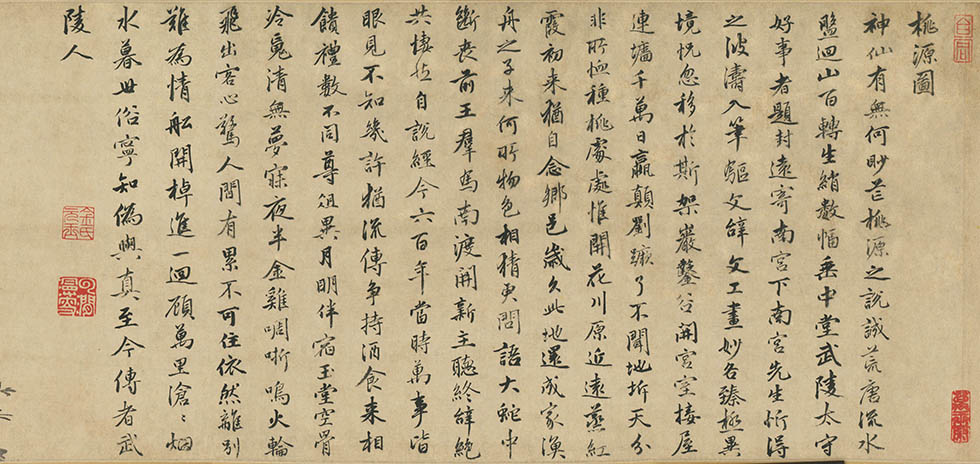 桃源圖
神仙有無何眇芒桃源之說誠荒唐流水
盤迴山百轉生綃數幅垂中堂武陵太守
好事者題封遠寄南宮下南宮先生忻得
之波濤入筆驅文辭文工畫妙各臻極異
境恍忽移於斯架巖鑿谷開宮室接屋
連墻千萬日嬴顛劉蹶了不聞地坼天分
非所恤種桃處處惟開花川原近遠蒸紅
霞初來猶自念鄉邑歲久此地還成家漁
舟之子來何所物色相猜更問語大蛇中
斷喪前王羣馬南渡開新主聽終辭絕
共悽然自說經今六百年當時萬事皆
眼見不知幾許猶流傳爭持酒食來相
饋禮數不同尊俎異月明伴宿玉堂空骨
冷魂清無夢寐夜半金雞啁哳鳴火輪
飛出客心驚人間有累不可住依然離別
難為情船開棹進一迴顧萬里滄〻烟
水暮世俗寧知偽與真至今傳者武
陵人
金氏元玉